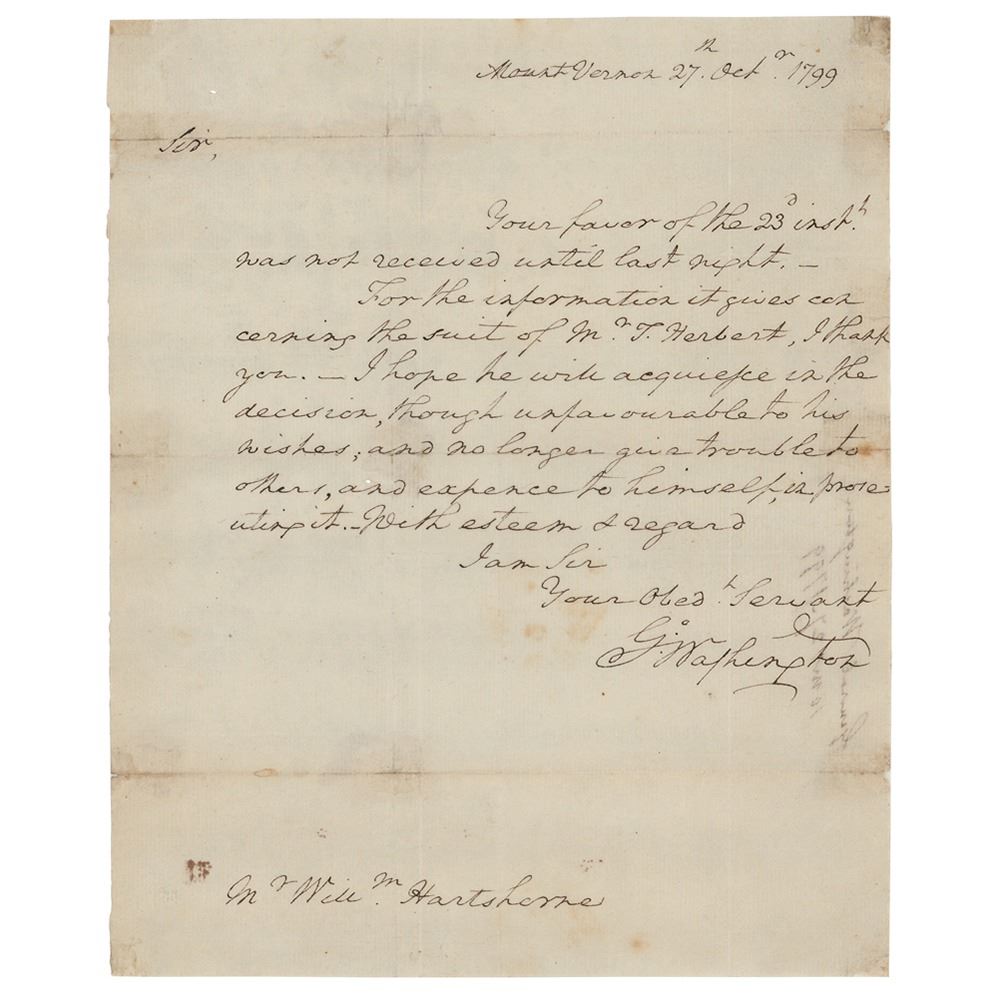 Mount Vernon 27th. Octr. 1799
Sir,
Your favor of the 23d instt.
was not received until last night. —
For the information it gives con
cerning the suit of Mr. T. Herbert, I thank
you. — I hope he will acquiesce in the
decision, though unfavourable to his
wishes; and no longer give trouble to
others, and expence to himself, in prose-
uting it. — With esteem & regard
I am Sir
Your Obedt. Servant
Go. Washington
Mr Willm. Hartshorne